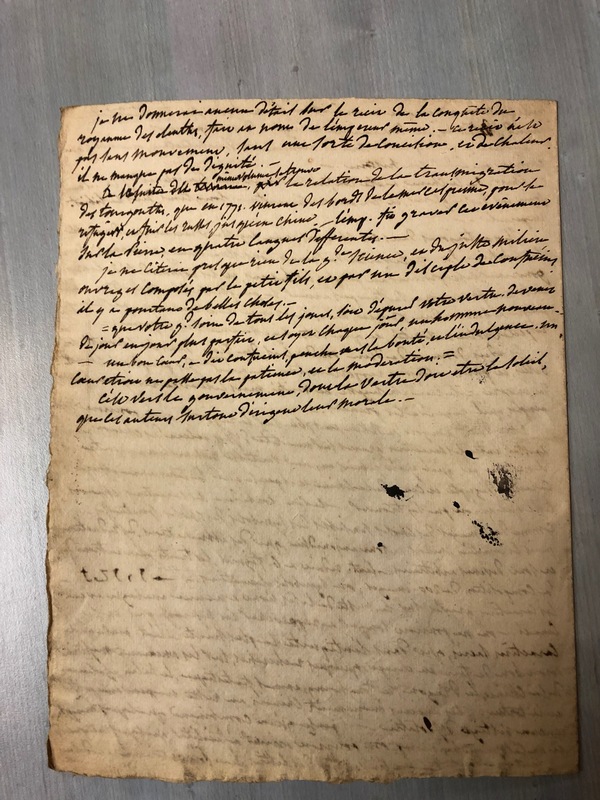 je ne donnerai aucun détail sur le récit de la conquête du
royaume des éleuths, faite au nom de l'empereur même. — ce récit n'est
pas sans mouvement, sans une sorte de concision, et de chaleur.
il ne manque pas de dignité. —
même volume
par la relation de la transmigration
des tourgouths, qui en 1771. vinrent des bords de la mer caspienne, pour se
réfugier, jusqu'en chine — l'emp. fit graver cet évènement
sur la pierre, en quatre langues differentes. —
je ne citerai presque rien de la gde science, et du juste milieu
ouvrages composés par le petit fils, et par un disciple de Confucius
il y a pourtant de belles choses. —
= que votre gd soin de tous les jours, soit d'épurer votre vertu. devenez
de jour en jour plus parfait, et soyez chaque jour, un homme nouveau. =
— un bon cœur, dit confucius, penche vers la bonté, et l'indulgence, un
cœur étroit ne passe pas la patience, et la moderation. =
c'est vers le gouvernement, dont la vertu doit etre le soleil,
que ces auteurs surtout dirigent leur morale. —